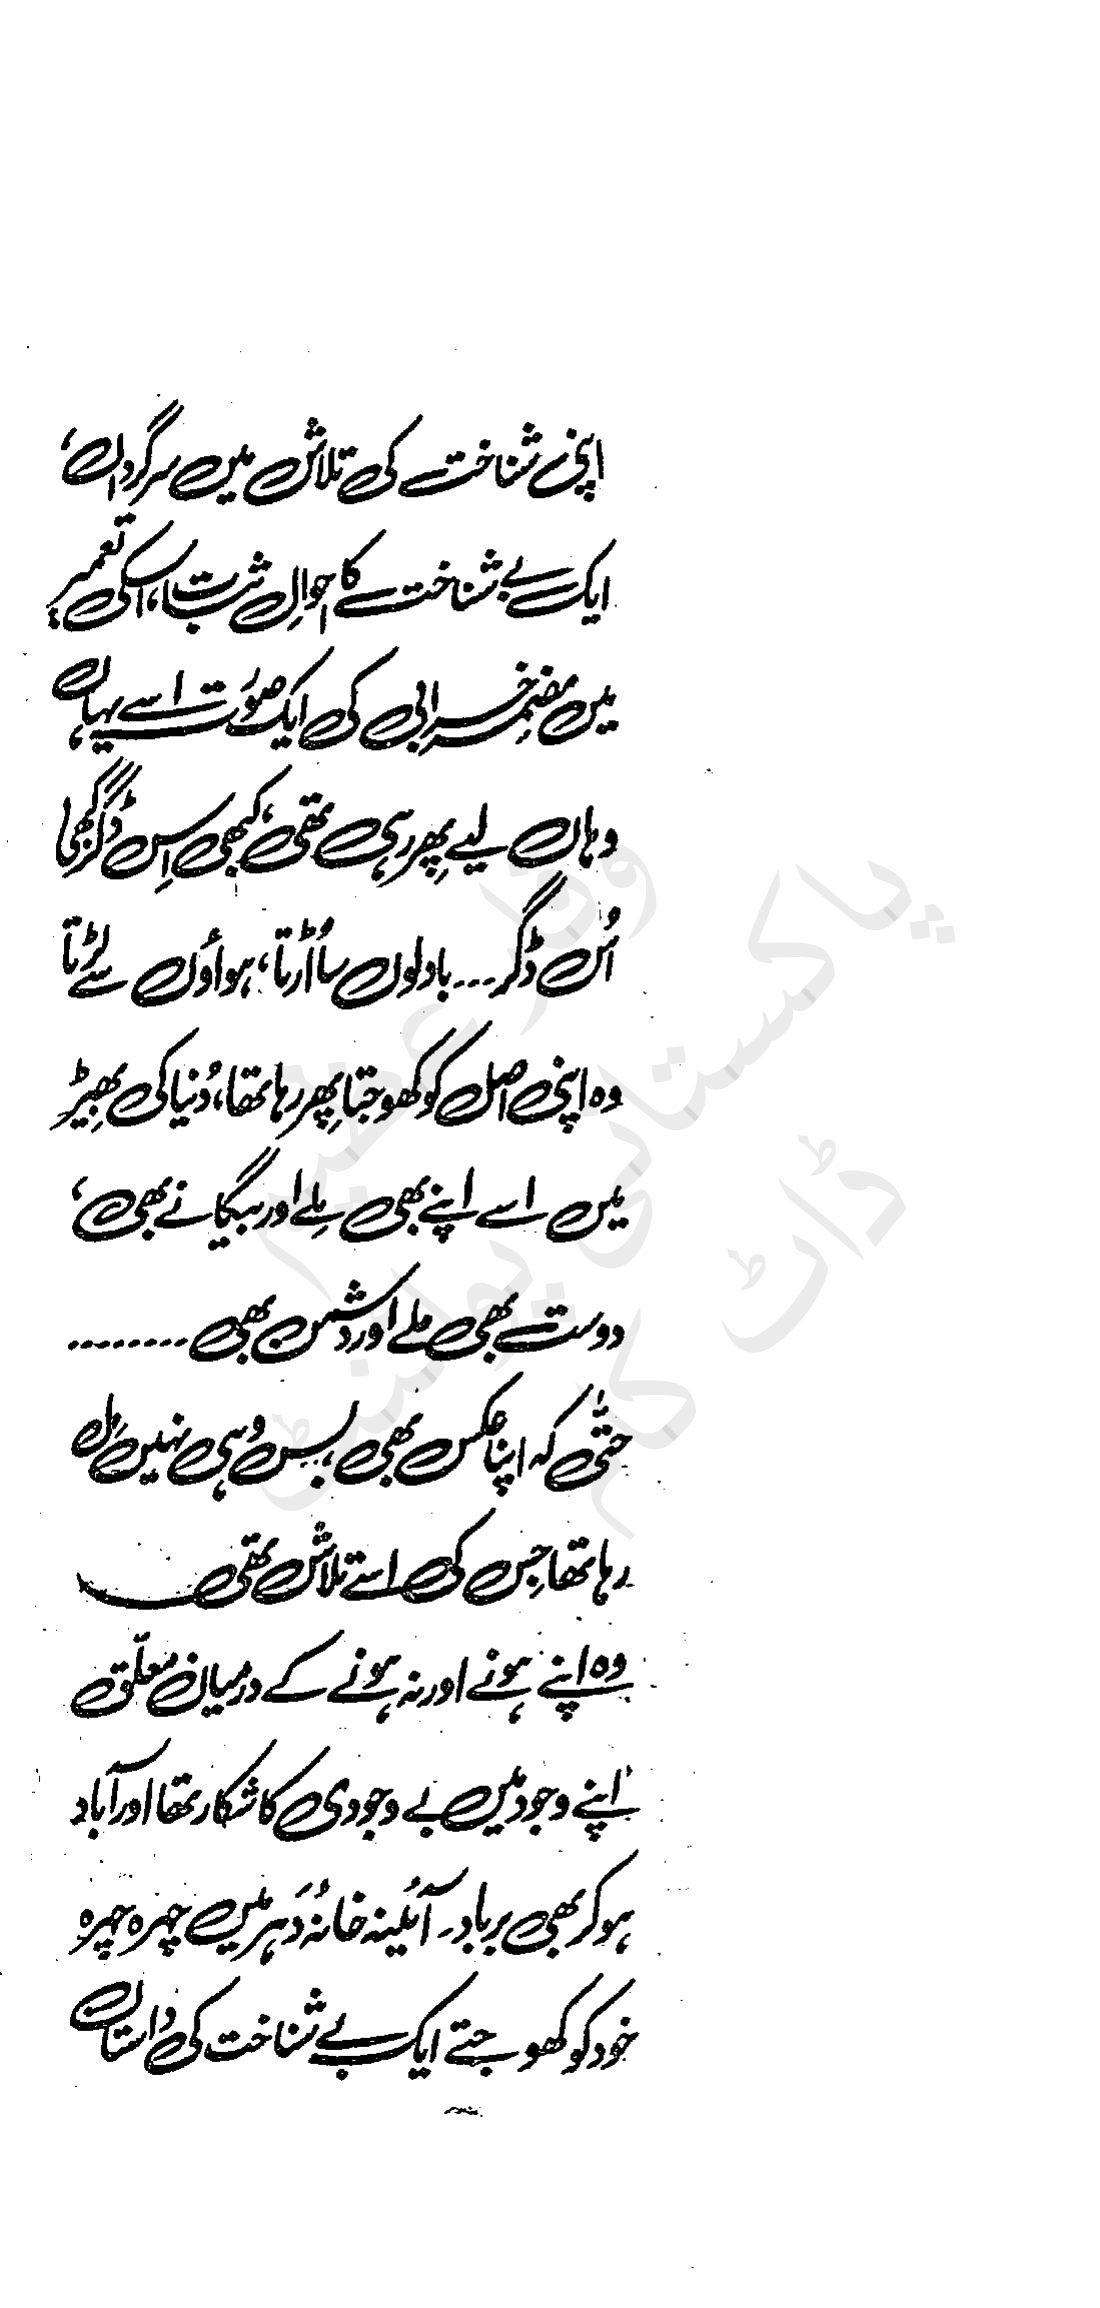 اپنی شناخت کی تلاش میں سرگرداں،
ایک بے شناخت کا احوالِ ثبت، اسکی تعمیر
میں مضمر خرابی کی ایک صورت اسے یہاں
وہاں لیے پھر رہی تھی، کبھی اِس ڈگر کبھی
اُس ڈگر... بادلوں سا اُڑتا، ہواؤں سے لڑتا
وہ اپنی اصل کو کھوجتا پھر رہا تھا، دُنیا کی بھیڑ
میں اسے اپنے بھی مِلے اور بیگانے بھی،
دوست بھی ملے اور دشمن بھی ........
حتّٰی کہ اپنا عکس بھی، بس وُہی نہیں مل
رہا تھا جِس کی اسے تلاش تھی
وہ اپنے ہونے اور نہ ہونے کے درمیان معلّق
اپنے وجود میں بے وجودی کا شکار تھا اور آباد
ہو کر بھی برباد۔ آئینہ خانۂ دَہر میں چہرہ چہرہ
خود کو کھوجتے ایک بے شناخت کی داستان
پاکستانی پوائنٹ
ڈاٹ کام